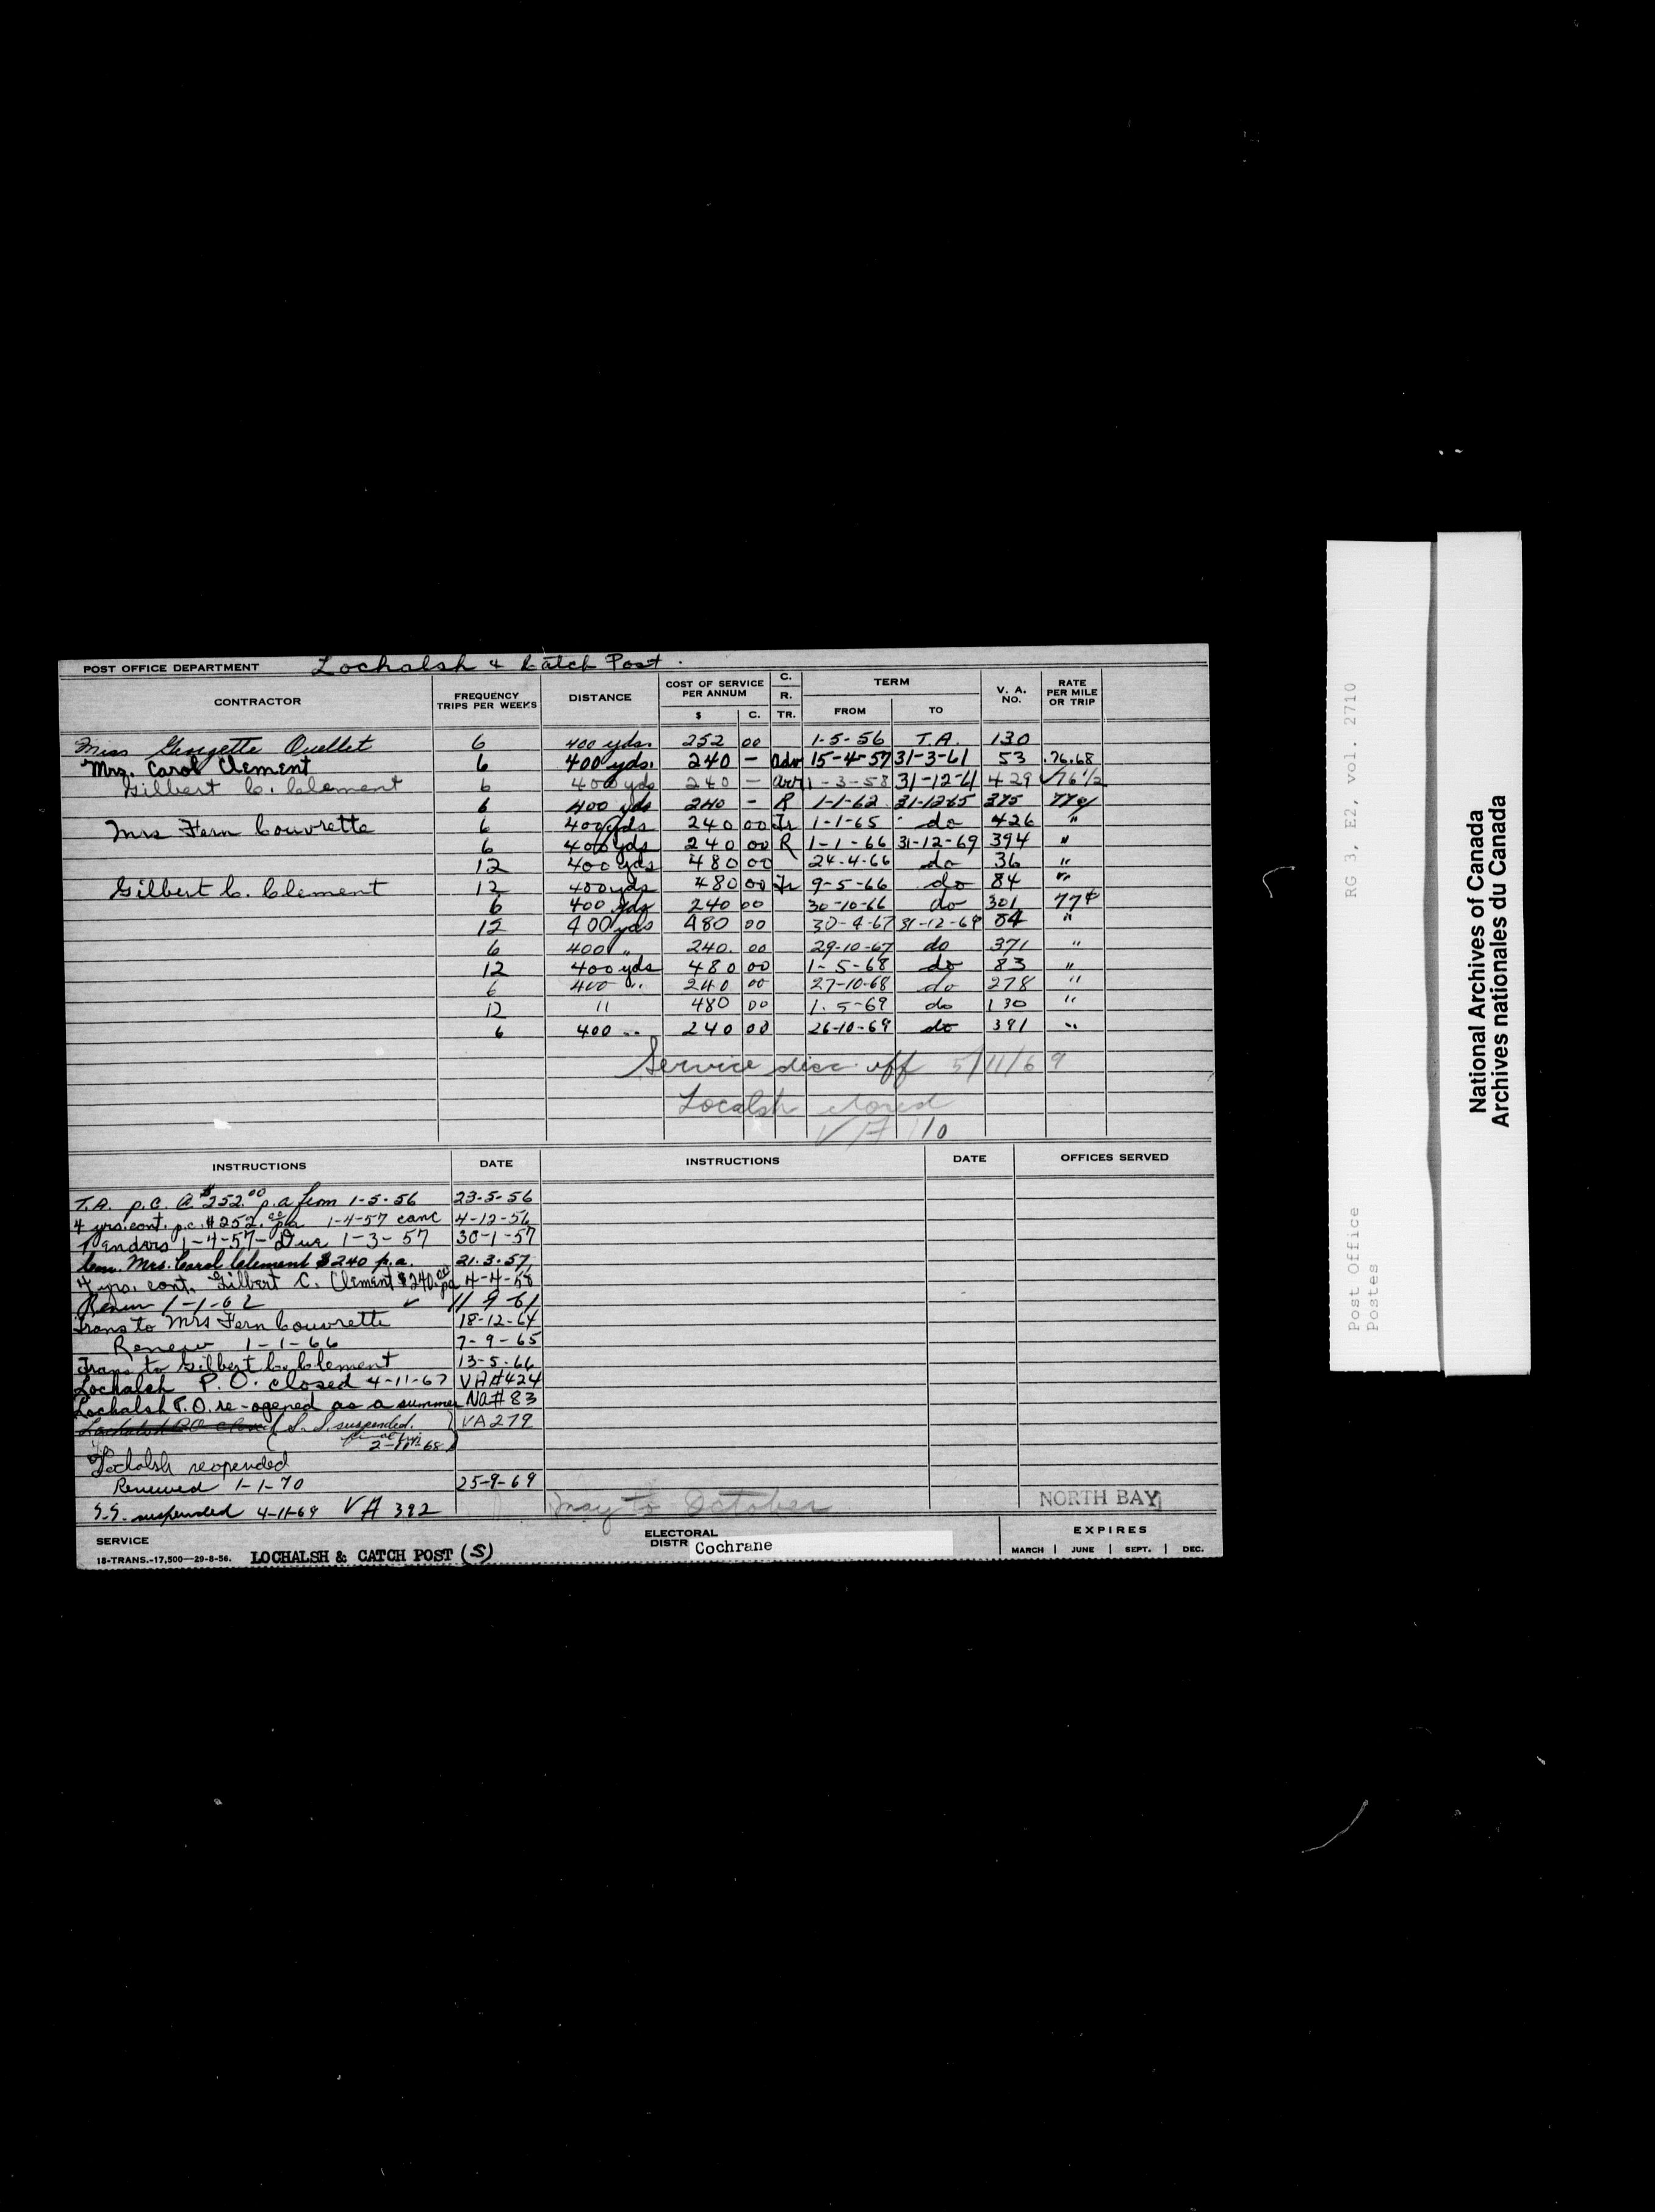 POST OFFICE DEPARTMENT Lochalsh & Catch Post.
CONTRACTOR FREQUENCY TRIPS PER WEEKS DISTANCE COST OF SERVICE PER ANNUM $ C. C. R. TR. TERM FROM TO V. A. NO. RATE PER MILE OR TRIP
Miss Georgette Ouellet 6 400 yds. 252 00 1-5-56 T.A. 130
Mrs. Carol Clement 6 400 yds. 240 — adv 15-4-57 31-3-61 53 .76.68
Gilbert C. Clement 6 400 yds 240 — 1-3-58 31-12-61 429 √76 1/2
6 400 yds 240 - R 1-1-62 31-12-65 375 77¢
Mrs Fern Couvrette 6 400 yds 240 00 Tr 1-1-65 do 426 "
6 400 yds 240 00 R 1-1-66 31-12-69 394 "
12 400 yds 480 00 24-4-66 do 36 "
Gilbert C. Clement 12 400 yds 480 00 Tr 9-5-66 do 84 "
6 400 yds 240 00 30-10-66 do 301 77¢
12 400 yds 480 00 30-4-67 31-12-69 84 "
6 400 " 240. 00 29-10-67 do 371 "
12 400 yds 480 00 1-5-68 do 83 "
6 400 " 240 00 27-10-68 do 278 "
12 11 480 00 1.5-69 do 130 "
6 400 " 240 00 26-10-69 do 391 "
Service disc. eff 5/11/69
Localsh closed
VA 110
INSTRUCTIONS DATE INSTRUCTIONS DATE OFFICES SERVED
T.A. p.c. @ $252.00 p.a from 1-5-56 23-5-56
4 yrs. cont. p.c. $252.00 pa 1-4-57 canc 4-12-56
Tenders 1-4-57 - Due 1-3-57 30-1-57
Mrs. Carol Clement $240 p.a. 21.3.57
4 yrs. cont. Gilbert C. Clement $240.00 pa 4-4-58
Renew 1-1-62 ✓ 11-9-61
Trans to Mrs Fern Couvrette 18-12-64
Renew 1-1-66 7-9-65
Trans to Gilbert C. Clement 13-5-66
Lochalsh P.O. closed 4-11-67 VA#424
Lochalsh P.O. re-opened as a summer Na# 83
Lochalsh PO closed (S.S suspended. VA 279
2-11-68)
Lochalsh reopended
Renewed 1-1-70 25-9-69
S.S. suspended 4-11-69 VA 392 May to October NORTH BAY
SERVICE ELECTORAL DISTR Cochrane EXPIRES
18-TRANS.-17,500—29-8-56. LOCHALSH & CATCH POST (S) MARCH | JUNE | SEPT. | DEC.
Post Office RG 3, E2, vol. 2710
Postes
National Archives of Canada
Archives nationales du Canada